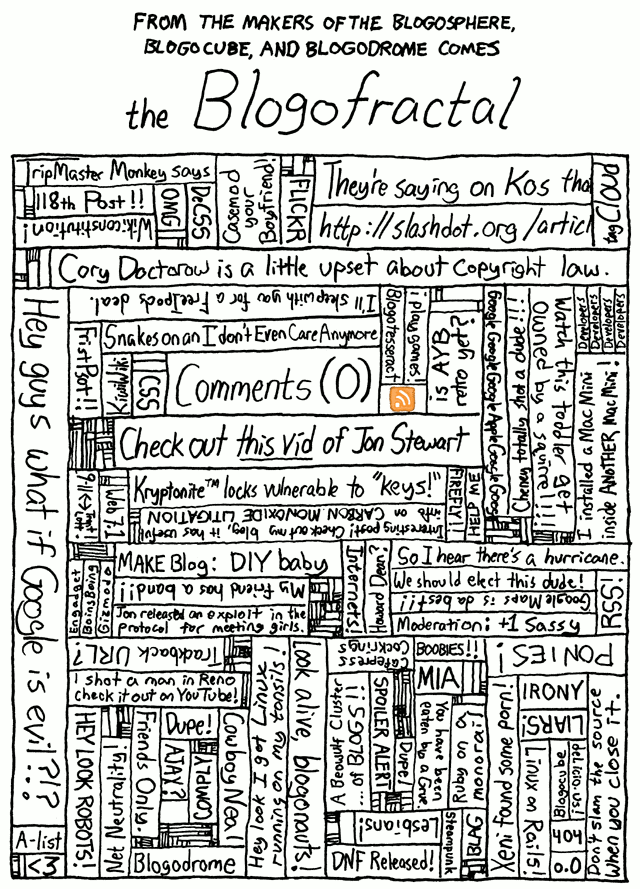 FROM THE MAKERS OF THE BLOGOSPHERE,
BLOGOCUBE, AND BLOGODROME COMES
the Blogofractal
TripMaster Monkey says
118th Post!!
Wikiconstitution!
OMG
DeCSS
Casemod your Boyfriend!
FLICKR
They're saying on Kos tha
http://slashdot.org/articl
tag Cloud
Cory Doctorow is a little upset about copyright law.
Hey guys what if Google is evil?!?
I'll sleep with you for a FreeIpods deal.
Snakes on an I don't Even Care Anymore
FirstPot!!
KiwiWiki
CSS
Comments (0)
Blogotesseract
i play games!
is AYB retro yet?
Google Google Google Apple Google Google
Cheney totally shot a dude!!!
Watch this toddler get
Owned by a squirrel!!!
Developers
Developers
Developers
Developers
I installed a Mac Mini
inside ANOTHER Mac Mini!
Check out this vid of Jon Stewart
Web 7.1
Kryptonite™ locks vulnerable to "keys!"
Interesting post! Check out my blog, it has useful
info on CARBON MONOXIDE LITIGATION
FIREFLY!!
HELP ME
Engadget
BoingBoing
Gizmodo
MAKE Blog: DIY baby
My friend has a band!!
Jon released an exploit in the
protocol for meeting girls.
Internets!
Howard Dean?
So I hear there's a hurricane.
We should elect this dude!
Google Maps is da best!!
Moderation: +1 Sassy
RSS!
Trackback URL?
I shot a man in Reno
check it out on YouTube!
HEY LOOK ROBOTS!
Net Neutrality!
Friends Only.
Dupe!
AJAX?
COMPLY!
Cowboy Neal
Blogodrome
Hey look I got Linux
running on my tonsils!
Look alive, blogonauts!
Cafepress
Cockrings
A Beowulf Cluster
... of BLOGS!!
SPOILER ALERT!
Dupe!
BOOBIES!!
MIA
You have been
eaten by a Grue
Ruby on a
monorail
Lesbians!
DNF Released!
Steampunk
BLAG
PONIES!
Xeni found some porn!
IRONY
LIARS!
Linux on Rails!
Blogocube
del.icio.us!
404
0.0
Don't slam the source
when you close it.
A-list
<3